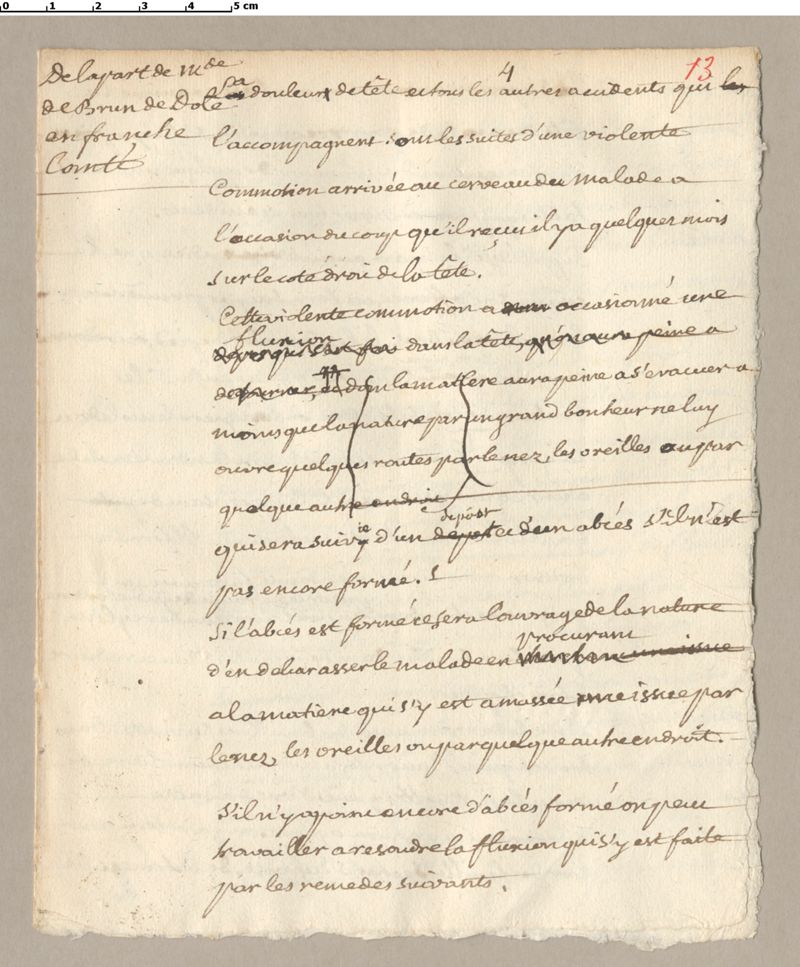 0 1 2 3 4 5 cm
De la part de Mde
de Brun de Dole
en franche
Comté
4
13
Sa douleur de tête et tous les autres accidents qui les
l'accompagnent sont les suites d'une violente
Commotion arrivée au cerveau du malade a
l'occasion du coup qu'il reçut il y a quelques mois
sur le coté droit de la tête.
Cette violente commotion a occasionné une
fluxion
dans la tête, qu'on aura peine a
dont la matiere aura peine a s'evacuer a
moins que la nature par un grand bonheur ne luy
ouvre quelques routes par le nez, les oreilles ou par
quelque autre endroit
depost
qui sera suivie d'un depost et d'un abcés s'il n'est
pas encore formé.
Si l'abcés est formé ce sera l'ouvrage de la nature
procurant
d'en debarasser le malade en
a la matiere qui s'y est amassée une issue par
le nez, les oreilles ou par quelque autre endroit.
S'il n'y a point encore d'abcés formé on peut
travailler a resoudre la fluxion qui s'y est faite
par les remedes suivants.